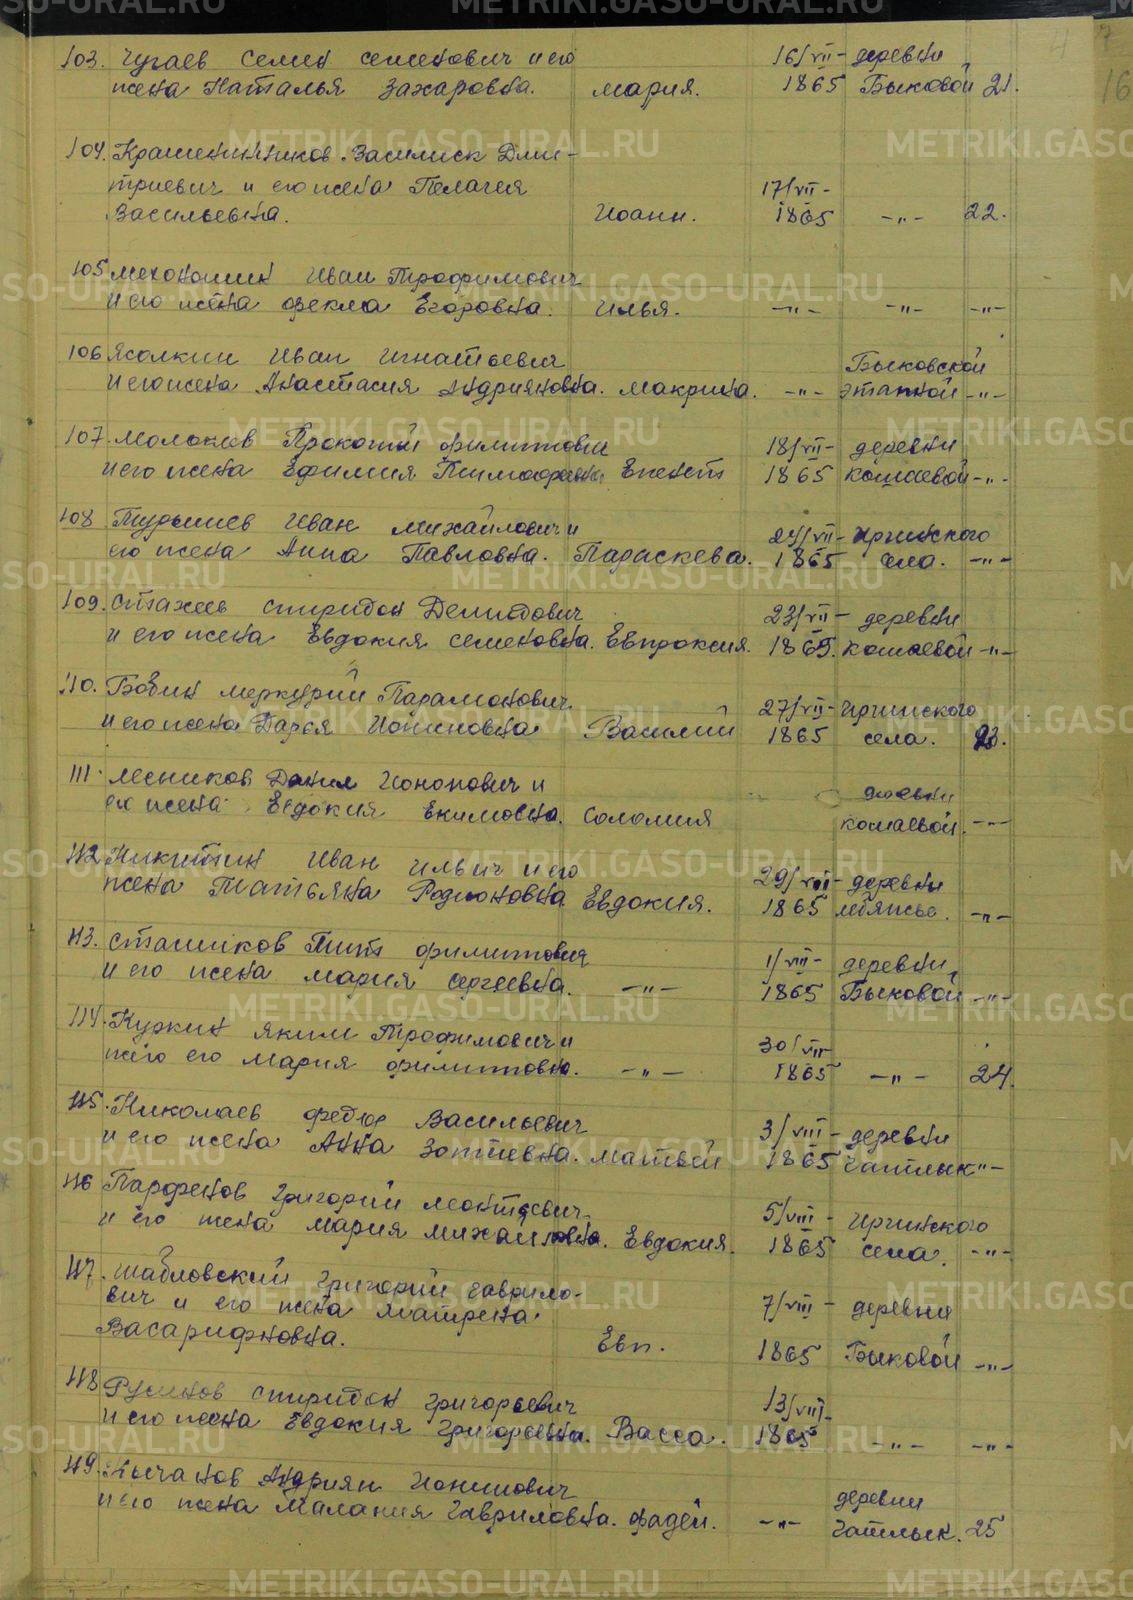 103. Чугаев Семен семенович и его 16/VII- деревни
жена Наталья Захаровна. Мария. 1865 Быковой 21.
104. Крашенинников Василиск Дми-
триевич и его жена Пелагея 17/VII-
Васильевна. Иоанн. 1865 -"- 22.
105 Мехоношин Иван Трофимович
и его жена Фекла Егоровна. Илья. -"- -"- -"-
106 Иван Игнатьевич Быковской
и его жена Анастасия Андрияновна. Макрина. -"- этапной -"-
107. Прокопий Филиппович 18/VII- деревни
и его жена Ефимия 1865 Кошаевой -"-
108 Иван Михайлович и 24/VII- Иргинского
его жена Анна Павловна. Параскева. 1865 села. -"-
109. Стахеев Спиридон Демидович 23/VII- деревни
и его жена Евдокия Семеновна. Евпроксия. 1865. Кошаевой -"-
110. Бобин Меркурий Парамонович 27/VII- Иргинского
и его жена Дарья Василий 1865 села. 23.
111. Лесников Данил и деревни
его жена Евдокия Екимовна. Соломия Кошаевой. -"-
112 Никитин Иван Ильич и его 29/VII- деревни
жена Татьяна Родионовна Евдокия. 1865 -"-
113. Сташков Тит Филиппович 1/VIII- деревни
и его жена Мария Сергеевна. -"- 1865 Быковой -"-
114. Куркин Яким Трофимович и 30/VII-
его Мария Филипповна. -"- 1865 -"- 24.
115. Николаев Федор Васильевич 3/VIII- деревни
и его жена Анна Зотиевна. Матвей 1865 Чатлык -"-
116 Парфенов Григорий 5/VIII- Иргинского
и его жена Мария Михайловна. Евдокия. 1865 села. -"-
117. Шабловский Григорий Гаврило-
вич и его жена Матрена 7/VIII- деревни
Евп. 1865 Быковой -"-
118 Русинов Спиридон Григорьевич 13/VII-
и его жена Евдокия Григорьевна. Васса. 1865 -"- -"-
119. Андриян деревни
и его жена Малания Гавриловна. Фадей. -"- Чатлык. 25